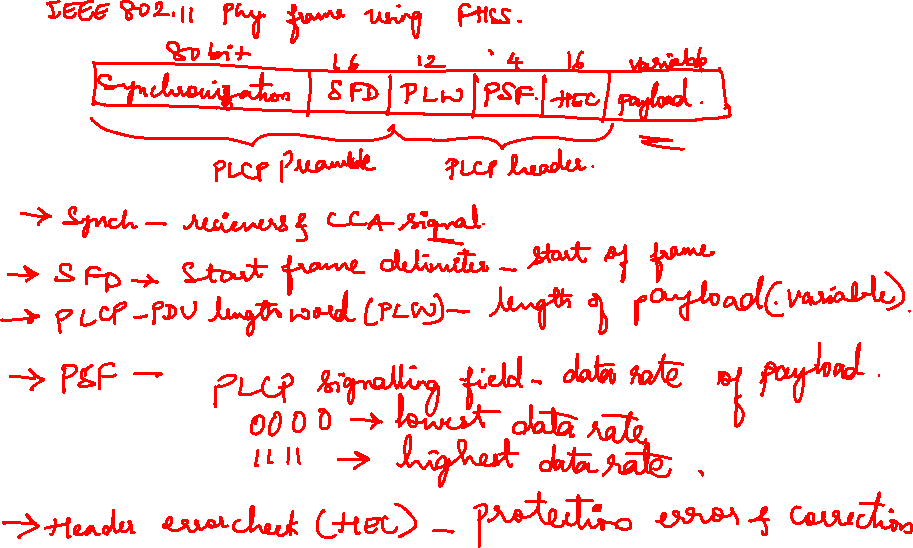 IEEE 802.11 Phy frame using FHSS.
80 bit 16 12 4 16 variable
Synchronization SFD PLW PSF HEC payload.
PLCP Preamble PLCP header.
→ Synch - recievers & CCA signal.
→ SFD → Start frame delimiter - start of frame
→ PLCP-PDU length word (PLW) - length of payload (variable).
→ PSF - PLCP signalling field - data rate of payload.
0000 → lowest data rate
1111 → highest data rate.
→ Header error check (HEC) - protection error & correction